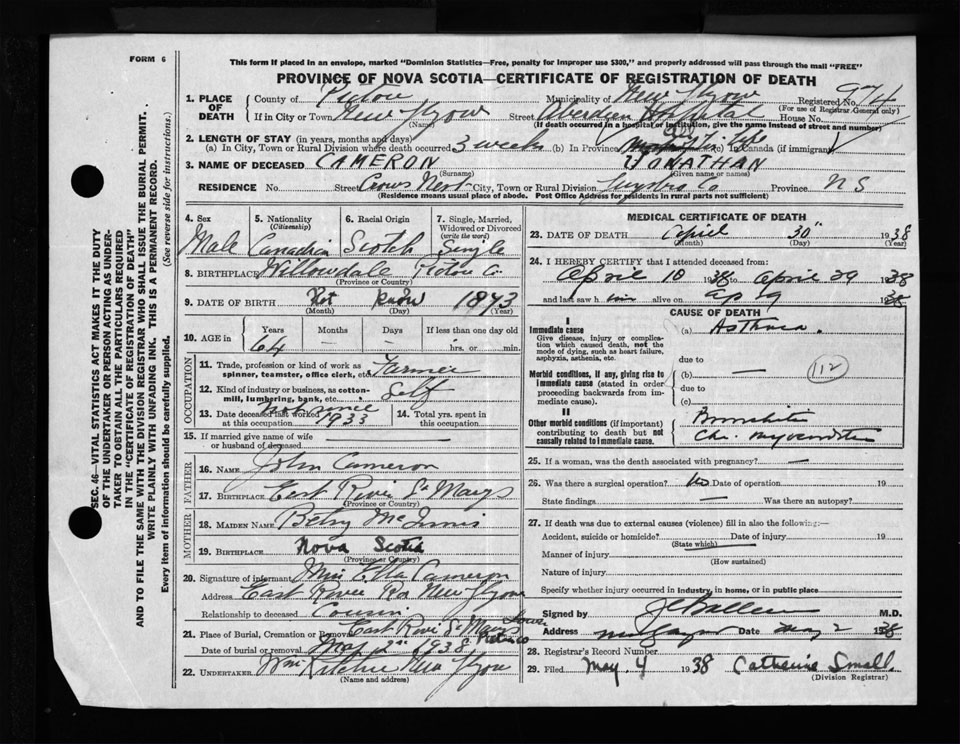 FORM 6
This form if placed in an envelope, marked "Dominion Statistics—Free, penalty for improper use $300," and properly addressed will pass through the mail "FREE"
PROVINCE OF NOVA SCOTIA—CERTIFICATE OF REGISTRATION OF DEATH
SEC. 46—VITAL STATISTICS ACT MAKES IT THE DUTY
OF THE UNDERTAKER OR PERSON ACTING AS UNDER-
TAKER TO OBTAIN ALL THE PARTICULARS REQUIRED
IN THE "CERTIFICATE OF REGISTRATION OF DEATH"
AND TO FILE THE SAME WITH THE DIVISION REGISTRAR WHO SHALL ISSUE THE BURIAL PERMIT.
WRITE PLAINLY WITH UNFADING INK. THIS IS A PERMANENT RECORD.
Every item of information should be carefully supplied. (See reverse side for instructions.)
1. PLACE OF DEATH
County of Pictou Municipality of New Glasgow Registered No. 974
(For use of Registrar General only)
If in City or Town New Glasgow Street Aberdeen Hospital House No.
(Name) (If death occurred in a hospital or institution, give the name instead of street and number)
2. LENGTH OF STAY (in years, months and days)
(a) In City, Town or Rural Division where death occurred 3 weeks (b) In Province life (c) In Canada (if immigrant)
3. NAME OF DECEASED CAMERON JONATHAN
(Surname) (Given name or names)
RESIDENCE No. Street Crows Nest City, Town or Rural Division Guysboro Co Province N S
(Residence means usual place of abode. Post Office Address for residents in rural parts not sufficient)
4. Sex Male
5. Nationality (Citizenship) Canadian
6. Racial Origin Scotch
7. Single, Married, Widowed or Divorced (write the word) Single
8. BIRTHPLACE Willowdale Pictou Co.
(Province or Country)
9. DATE OF BIRTH Not know 1873
(Month) (Day) (Year)
10. AGE in Years 64 Months — Days — If less than one day old
hrs. or min.
OCCUPATION
11. Trade, profession or kind of work as spinner, teamster, office clerk, etc. Farmer
12. Kind of industry or business, as cotton-mill, lumbering, bank, etc. Self
13. Date deceased last worked at this occupation not since 1933
14. Total yrs. spent in this occupation
15. If married give name of wife or husband of deceased
FATHER
16. NAME John Cameron
17. BIRTHPLACE East River St Marys
(Province or Country)
MOTHER
18. MAIDEN NAME Betsy McInnis
19. BIRTHPLACE Nova Scotia
(Province or Country)
20. Signature of informant Mrs Ella Cameron
Address East River Rd New Glasgow
Relationship to deceased Cousin
21. Place of Burial, Cremation or Removal East River St Marys Pictou co
Date of burial or removal May 2nd 1938
22. UNDERTAKER Wm Ritchie New Glasgow
(Name and address)
MEDICAL CERTIFICATE OF DEATH
23. DATE OF DEATH April 30" 1938
(Month) (Day) (Year)
24. I HEREBY CERTIFY that I attended deceased from:
April 10 1938 to April 29 1938
and last saw h im alive on 1938
CAUSE OF DEATH
I
Immediate cause (a) Asthma.
Give disease, injury or complica-
tion which caused death, not the
mode of dying, such as heart failure,
asphyxia, asthenia, etc.
due to
Morbid conditions, if any, giving rise to (b) —
immediate cause (stated in order due to
proceeding backwards from im-
mediate cause). (c)
112
II
Other morbid conditions (if important) Bronchitis
contributing to death but not Chr. myocarditis
causally related to immediate cause.
25. If a woman, was the death associated with pregnancy? —
26. Was there a surgical operation? No Date of operation 19
State findings — Was there an autopsy?
27. If death was due to external causes (violence) fill in also the following:—
Accident, suicide or homicide? Date of injury 19
(State which)
Manner of injury
(How sustained)
Nature of injury
Specify whether injury occurred in industry, in home, or in public place
Signed by M.D.
Address Date May 2 1938
28. Registrar's Record Number
29. Filed May 4 1938 Catharine Small
(Division Registrar)